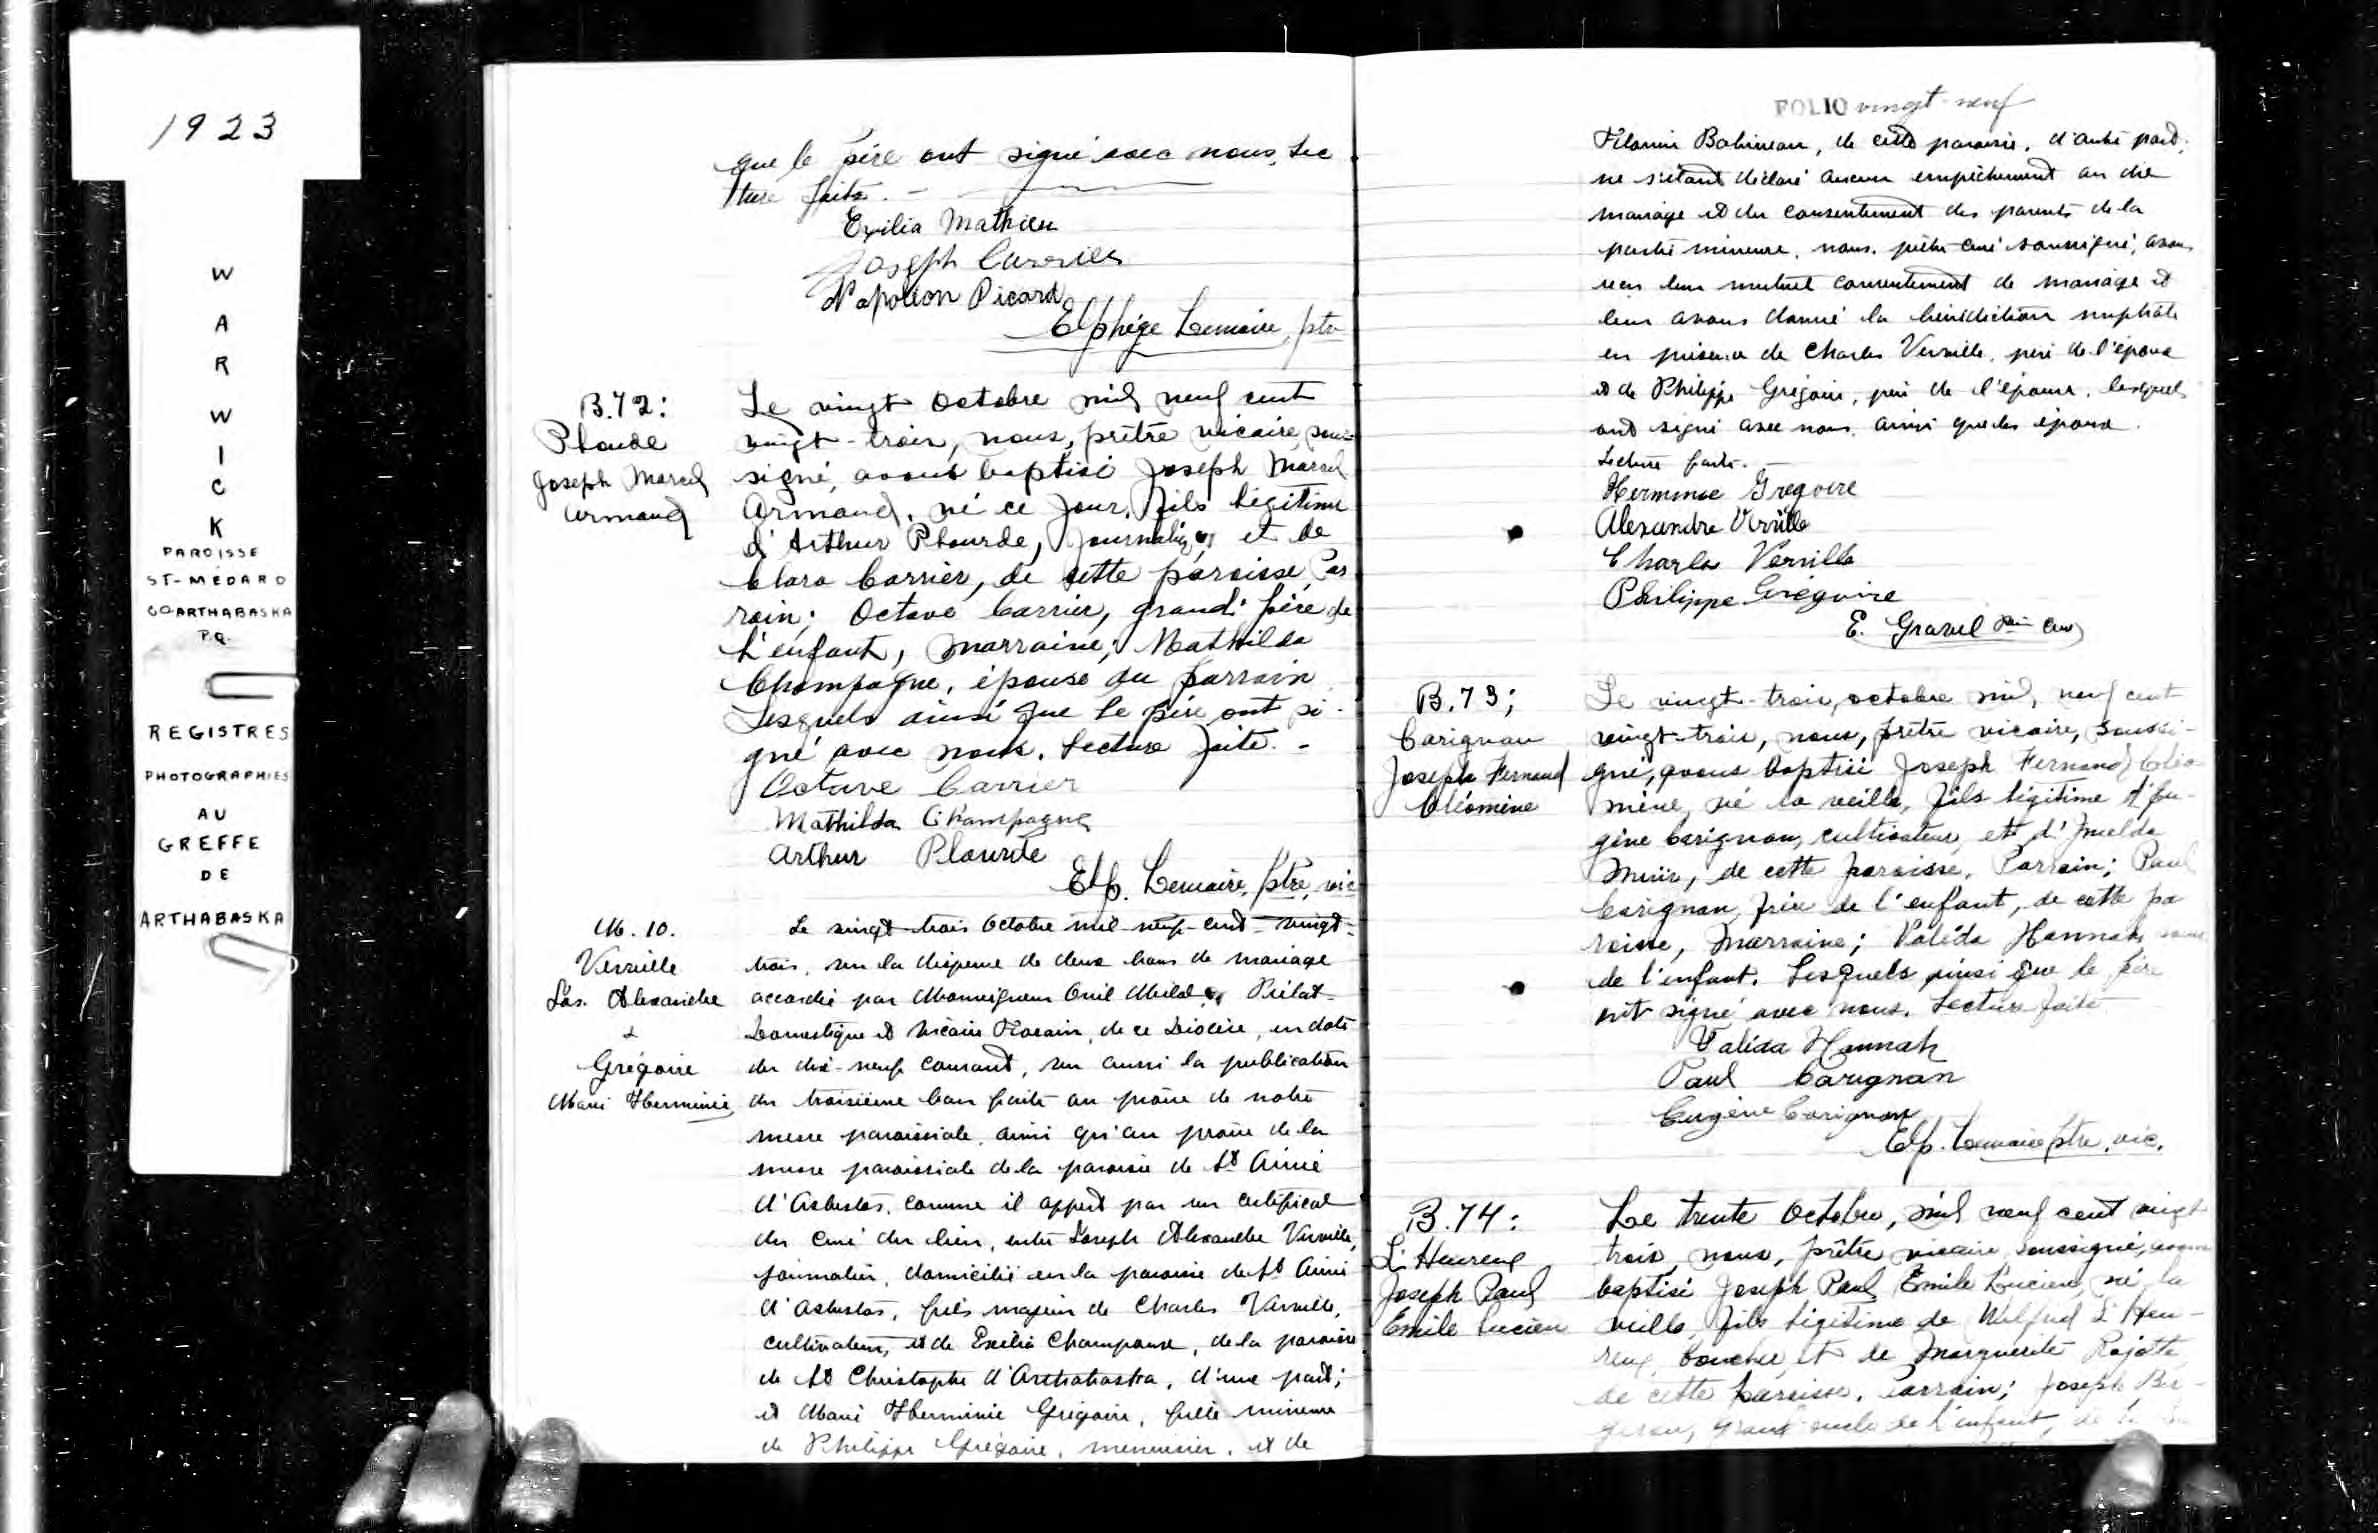 1923
W
A
R
W
I
C
K
PAROISSE
ST-MÉDARD
CO ARTHABASKA
P.Q.
REGISTRES
PHOTOGRAPHIES
AU
GREFFE
DE
ARTHABASKA
que le père ont signé avec nous, Lec
ture faite. -
Exilia Mathieu
Joseph Carrier
Napoléon Picard
Elphège Lemaire, ptre
B.72:
Plourde
Joseph Marcel
Armand
Le vingt Octobre mil neuf cent
vingt-trois, nous, prêtre vicaire, sous-
signé, avons baptisé Joseph Marcel
Armand, né ce jour, fils légitime
d'Arthur Plourde, journalier et de
Clara Carrier, de cette paroisse, Par
rain; Octave Carrier, grand-père de
l'enfant, marraine; Mathilda
Champagne, épouse du parrain
Lesquels ainsi que le père ont si-
gné avec nous. Lecture faite. -
Octave Carrier
Mathilda Champagne
Arthur Plourde
Elp. Lemaire, ptre, vic
M. 10.
Verville
Jos. Alexandre
&
Grégoire
Marie Herminie
Le vingt-trois Octobre mil-neuf-cent-vingt-
trois, vu la dispense de deux bans de mariage
accordée par Monseigneur Prélat
Domestique et Vicaire Forain, de ce Diocèse, en date
du dix-neuf courant, vu aussi la publication
du troisième ban faite au prône de notre
messe paroissiale, ainsi qu'au prône de la
messe paroissiale de la paroisse de St Aimé
d'Asbestos, comme il appert par un certificat
du curé du lieu, entre Joseph Alexandre Verville,
journalier, domicilié en la paroisse de St Aimé
d'Asbestos, fils majeur de Charles Verville,
cultivateur, et de Exilia Champoux, de la paroisse
de St Christophe d'Arthabaska, d'une part;
et Marie Herminie Grégoire, fille mineure
de Philippe Grégoire, menuisier, et de
FOLIO vingt-neuf
Babineau, de cette paroisse, d'autre part;
ne s'étant déclaré aucun empêchement au dit
mariage et du consentement des parents de la
partie mineure, nous, prêtre curé soussigné, avons
reçu leur mutuel consentement de mariage et
leur avons donné la bénédiction nuptiale
en présence de Charles Verville, père de l'époux
et de Philippe Grégoire, père de l'épouse, lesquels
ont signé avec nous, ainsi que les époux.
Lecture faite. -
Herminie Gregoire
Alexandre Verville
Charles Verville
Philippe Grégoire
E. Gravel ptre curé
B.73;
Carignan
Joseph Fernand
Cléomène
Le vingt-trois, octobre mil, neuf cent
vingt-trois, nous, prêtre vicaire, soussi-
gné, avons baptisé Joseph Fernand Cléo
mène, né la veille, fils légitime d'Eu-
gène Carignan, cultivateur, et d'Imelda
de cette paroisse, Parrain; Paul
Carignan, frère de l'enfant, de cette pa
roisse, marraine; Valéda Hannah,
de l'enfant. Lesquels ainsi que le père
ont signé avec nous. Lecture faite
Valéda Hannah
Paul Carignan
Eugène Carignan
Elp. Lemaire ptre, vic.
B.74:
L'Heureux
Joseph Paul
Emile Lucien
Le trente Octobre, mil neuf cent vingt
trois, nous, prêtre vicaire, soussigné, avons
baptisé Joseph Paul Emile Lucien, né la
veille, fils légitime de Wilfrid L'Heu-
reux, boucher, et de Marguerite Rajotte
de cette paroisse, Parrain; Joseph Ber-
geron, grand oncle de l'enfant,